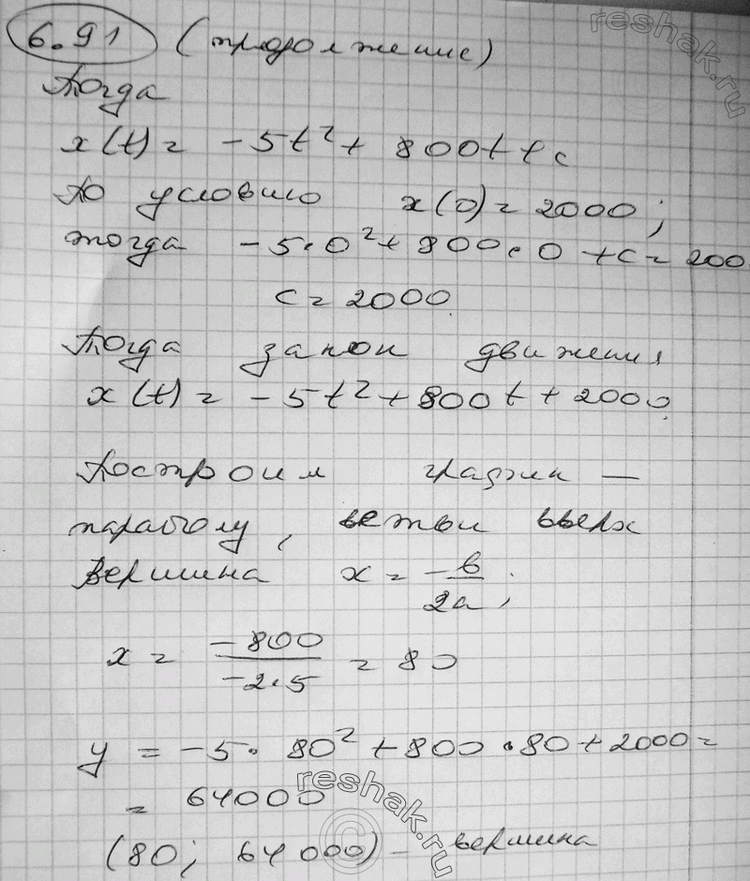 6.91 (продолжение)
Тогда
x(t) = -5t² + 800t + c
По условию x(0) = 2000;
тогда -5·0² + 800·0 + c = 200
c = 2000
Тогда закон движения
x(t) = -5t² + 800t + 2000
Построим график —
параболу, ветви вверх
Вершина x = -b/2a;
x = -800/-2·5 = 80
y = -5·80² + 800·80 + 2000 =
= 64000
(80; 64000) - вершина
reshak.ru
reshak.ru
©